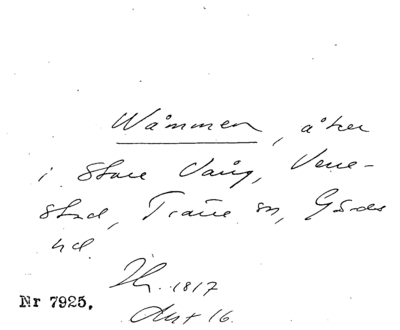 Wåmmen, åker
i Stora Vång, Vene-
stad, Träne sn, Gärds
hd.
Sk. 1817
Akt 16.
Nr 7925.